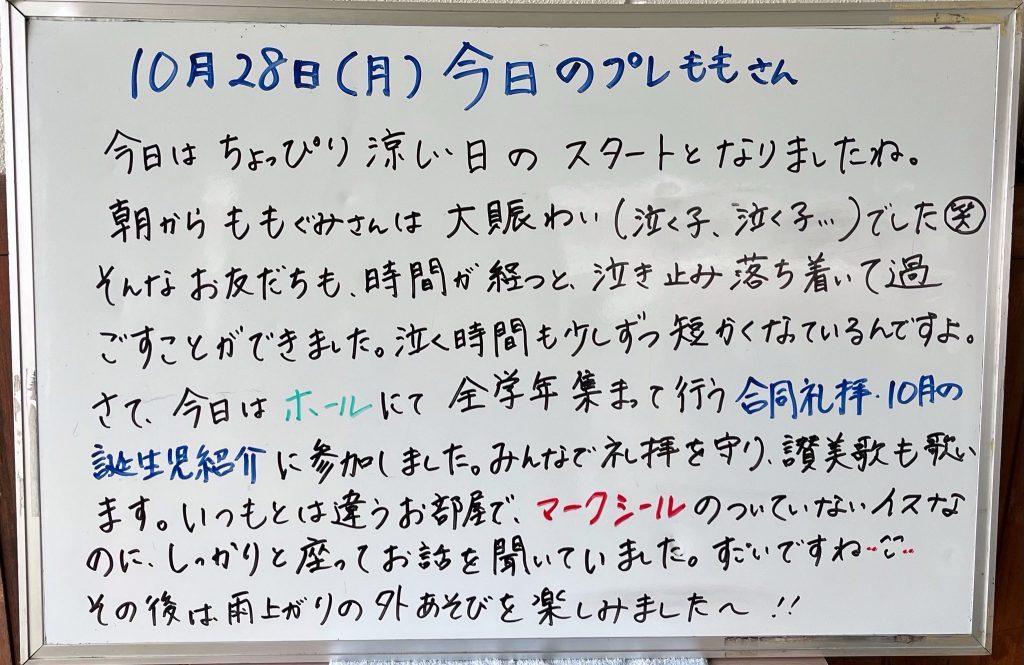 10月28日(月)今日のプレももさん
今日はちょっぴり涼しい日のスタートとなりましたね。
朝からももぐみさんは大賑わい(泣く子、泣く子…)でした㊗笑
そんなお友だちも、時間が経つと、泣き止み落ち着いて過
ごすことができました。泣く時間も少しずつ短かくなているんですよ。
さて、今日はホールにて全学年集まって行う合同礼拝・10月の
誕生児紹介に参加しました。みんなで礼拝を守り、讃美歌も歌い
ます。いつもとは違うお部屋で、マークシールのついていないイスな
のに、しっかりと座ってお話を聞いていました。すごいですね
その後は雨上がりの外あそびを楽しみました〜!!